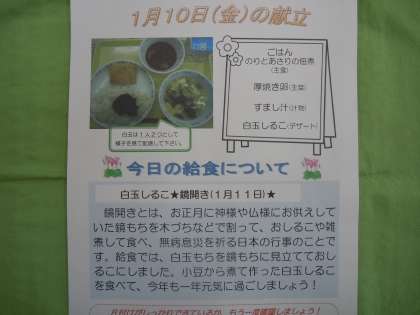 1月10日(金)の献立
ごはん
のりとあさりの佃煮
(主食)
厚焼き卵(主菜)
すまし汁(汁物)
白玉しるこ(デザート)
白玉は1人2つとして
様子を見て配膳して下さい。
今日の給食について
白玉しるこ★鏡開き(1月11日)★
鏡開きとは、お正月に神様や仏様にお供えし
ていた鏡もちを木づちなどで割って、おしるこや雑
煮して食べ、無病息災を祈る日本の行事のことで
す。給食では、白玉もちを鏡もちに見立てておし
るこにしました。小豆から煮て作った白玉しるこ
を食べて、今年も一年元気に過ごしましょう！